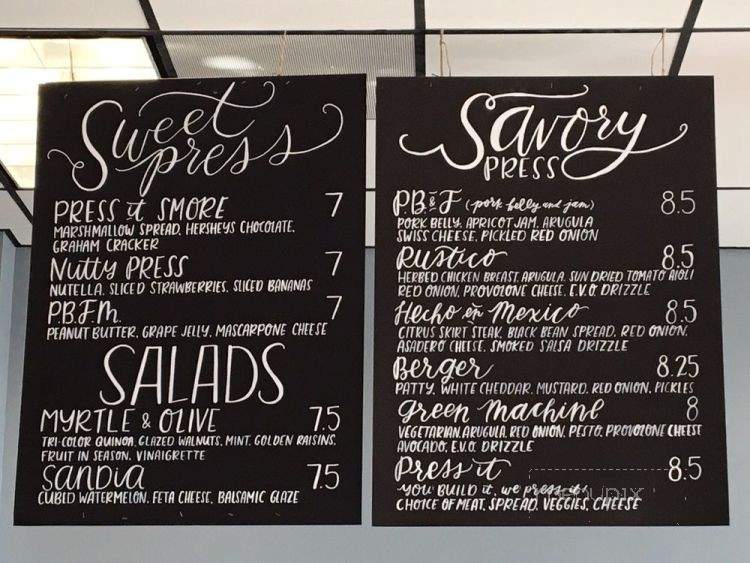 Sweet
press
PRESS it SMORE 7
MARSHMALLOW SPREAD, HERSHEYS CHOCOLATE,
GRAHAM CRACKER
Nutty PRESS 7
NUTELLA, SLICED STRAWBERRIES, SLICED BANANAS
P.B.F.M. 7
PEANUT BUTTER, GRAPE JELLY, MASCARPONE CHEESE
SALADS
MYRTLE & OLIVE 7.5
TRI-COLOR QUINOA, GLAZED WALNUTS, MINT, GOLDEN RAISINS,
FRUIT IN SEASON, VINAIGRETTE
SANDIA 7.5
CUBED WATERMELON, FETA CHEESE, BALSAMIC GLAZE
Savory
PRESS
P.B & F (pork belly and jam) 8.5
PORK BELLY, APRICOT JAM, ARUGULA
SWISS CHEESE, PICKLED RED ONION
Rustico 8.5
HERBED CHICKEN BREAST, ARUGULA, SUN DRIED TOMATO AIOLI
RED ONION, PROVOZONE CHEESE, E.V.O. DRIZZLE
Hecho en Mexico 8.5
CITRUS SKIRT STEAK, BLACK BEAN SPREAD, RED ONION,
ASADERO CHEESE, SMOKED SALSA DRIZZLE
Berger 8.25
PATTY, WHITE CHEDDAR, MUSTARD, RED ONION, PICKLES
Green Machine 8
VEGETARIAN, ARUGULA, RED ONION, PESTO, PROVOZONE CHEESE
AVOCADO, E.V.O. DRIZZLE
Press it 8.5
YOU BUILD it, we press it!
CHOICE OF MEAT, SPREAD, VEGGIES, CHEESE
MENUPIX